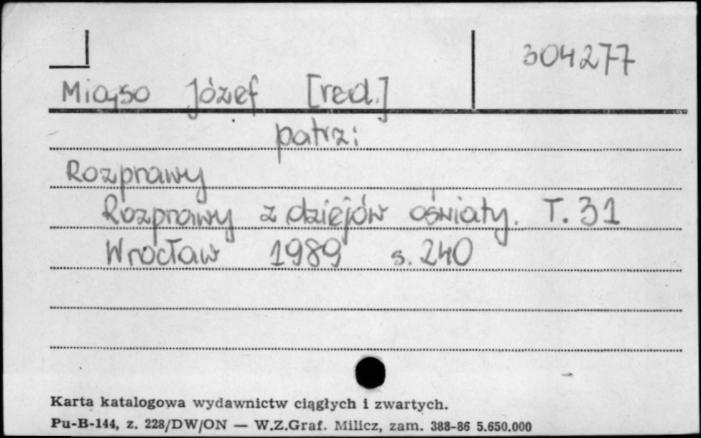 304277
Miąso Józef [red.]
patrz:
Rozprawy
Rozprawy z dziejów oświaty. T. 31
Wrocław 1989 s. 240
Karta katalogowa wydawnictw ciągłych i zwartych.
Pu-B-144, z. 228/DW/ON — W.Z.Graf. Milicz, zam. 388-86 5.650.000